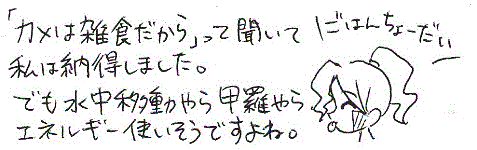 「カメは雑食だから」って聞いて
私は納得しました。
でも水中移動やら甲羅やら
エネルギー使いそうですよね。
ごはんちょーだい